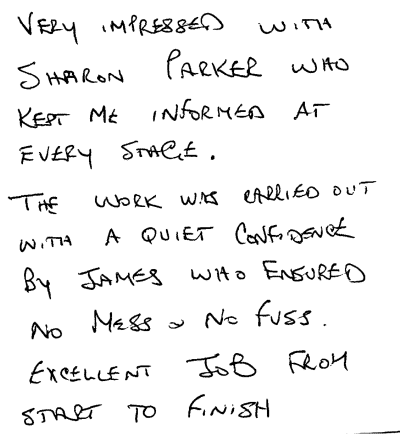 VERY IMPRESSED WITH
SHARON PARKER WHO
KEPT ME INFORMED AT
EVERY STAGE.
THE WORK WAS CARRIED OUT
WITH A QUIET CONFIDENCE
BY JAMES WHO ENSURED
NO MESS & NO FUSS.
EXCELLENT JOB FROM
START TO FINISH